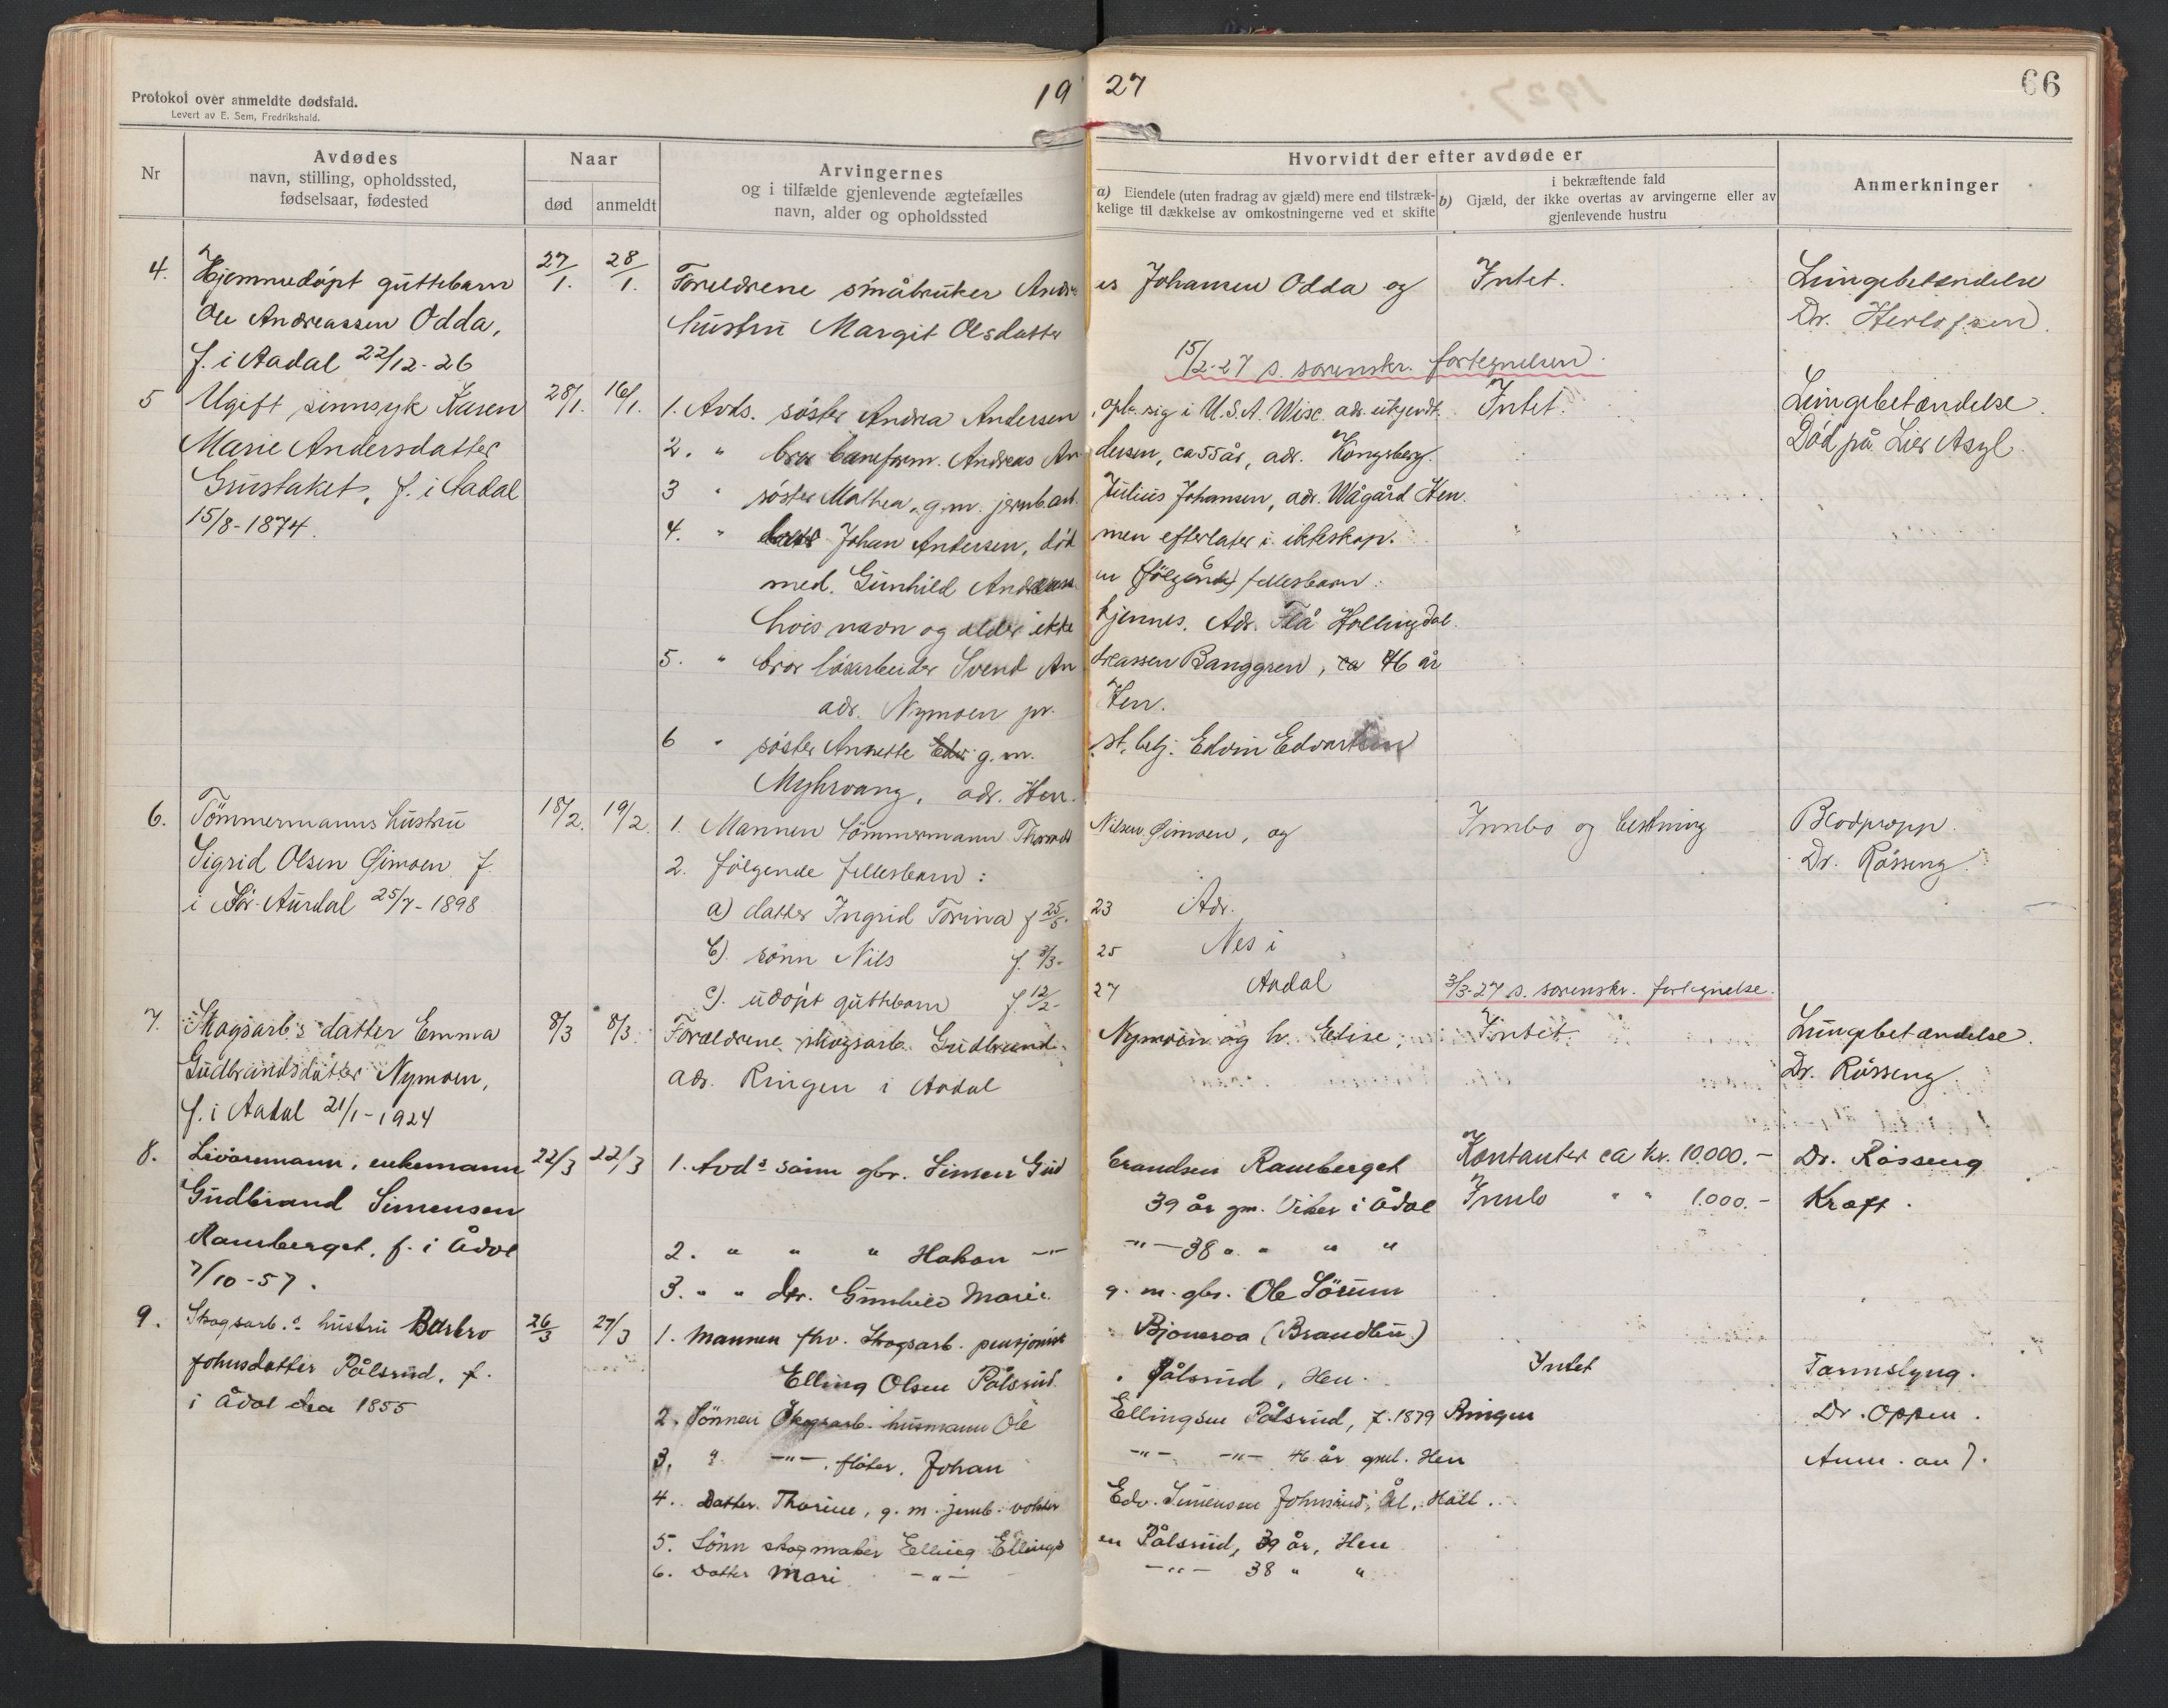 Protokol over anmeldte dødsfald.
Levert av E. Sem, Fredrikshald.
19 27
66
Nr
Avdødes
navn, stilling, opholdssted,
fødselsaar, fødested
Naar
død
anmeldt
Arvingernes
og i tilfælde gjenlevende ægtefælles
navn, alder og opholdssted
Hvorvidt der efter avdøde er
a) Eiendele (uten fradrag av gjæld) mere end tilstræk-
kelige til dækkelse av omkostningerne ved et skifte
i bekræftende fald
b) Gjæld, der ikke overtas av arvingerne eller av
gjenlevende hustru
Anmerkninger
4. Hjemmedøpt guttebarn 27/1. 28/1. Foreldrene småbruker Andreas Johansen Odda og Intet. Lungebetændelse
Ole Andreassen Odda, hustru Margit Olsdatter Dr. Herlofsen.
f. i Aadal 22/12-26 15/2-27 s. sorenskr. fortegnelsen.
5 Ugift sinnsyk Karen 28/1. 16/1. 1. Avds. søster Andrea Andersen, opb. sig i U.S.A. Wisc. adr. ukjendt. Intet. Lungebetændelse.
Marie Andersdatter 2. " bror baneform. Andreas Andersen, ca 55 år, adr. Kongsberg. Død på Lier Asyl.
Grustaket, f. i Aadal 3 " søster Mathea, g.m. jernb.arb. Julius Johansen, adr. Wågård Hen.
15/8-1874. 4. " Johan Andersen, død men efterlater i ekteskap.
med. Gunhild en (følgende) 6 fellesbarn:
hvis navn og alder ikke kjennes. Adr. Flå Hallingdal.
5. " bror løsarbeider Svend Andreassen Banggren, ca 46 år
adr. Nymoen pr. Hen.
6 " søster Annette g.m. st. betj. Edvin Edvartsen
Myhrvang, adr. Hen.
6. Tømmermanns hustru 18/2. 19/2. 1. Mannen tømmermann Nilsen Øimoen, og Innbo og besetning Blodpropp.
Sigrid Olsen Øimoen f. 2. følgende fellesbarn: Dr. Røsseng.
i Sør-Aurdal 25/7-1898 a) datter Ingrid Torina f 25/5. 23 Adr.
b). sønn Nils f. 3/3- 25 Nes i
c). udøpt guttebarn f. 12/2- 27 Aadal 3/3-27 s. sorenskr. fortegnelse.
7. Skogsarb.s datter Emma 8/3 8/3. Foreldrene skogsarb. Gudbrand Nymoen og h. Elise, Intet. Lungebetændelse.
Gudbrandsdatter Nymoen, adr. Ringen i Aadal Dr. Røsseng
f. i Aadal 21/1-1924
8. Livøremann, enkemann 22/3 22/3 1. Avds sønn gbr. Simen Gudbrandsen Ramberget Kontanter ca kr. 10.000.- Dr. Røsseng
Gudbrand Simensen 39 år gm. Viker i Ådal Innbo " " 1.000.- Kræft.
Ramberget, f. i Ådal 2. " " " Hakon -"- -"- 38 " " " "
7/10-57. 3. " " dtr. Gunhild Marie g. m. gbr. Ole Sørum
9. Skogsarb.s hustru Barbro 26/3 27/3 1. Mannen fhv. Skogsarb. pensjonist Bjoneroa (Brandbu)
Johnsdatter Pålsrud, f. Elling Olsen Pålsrud. Pålsrud, Hen. Intet Tarmslyng.
i Ådal 1855 2. Sønnen Skogsarb. husmann Ole Ellingsen Pålsrud, f. 1879 Ringen Dr. Oppen.
3. " -"- fløter, Johan -"- -"- 46 år Hen
4. Datter Thorine, g. m. jernb. vokter Edv. Simensen Johnsrud, Ål, Hall.
5. Sønn skogmaker Elling Ellingsen Pålsrud, 39 år, Hen
6. Datter Mari -"- -"- 38 " "